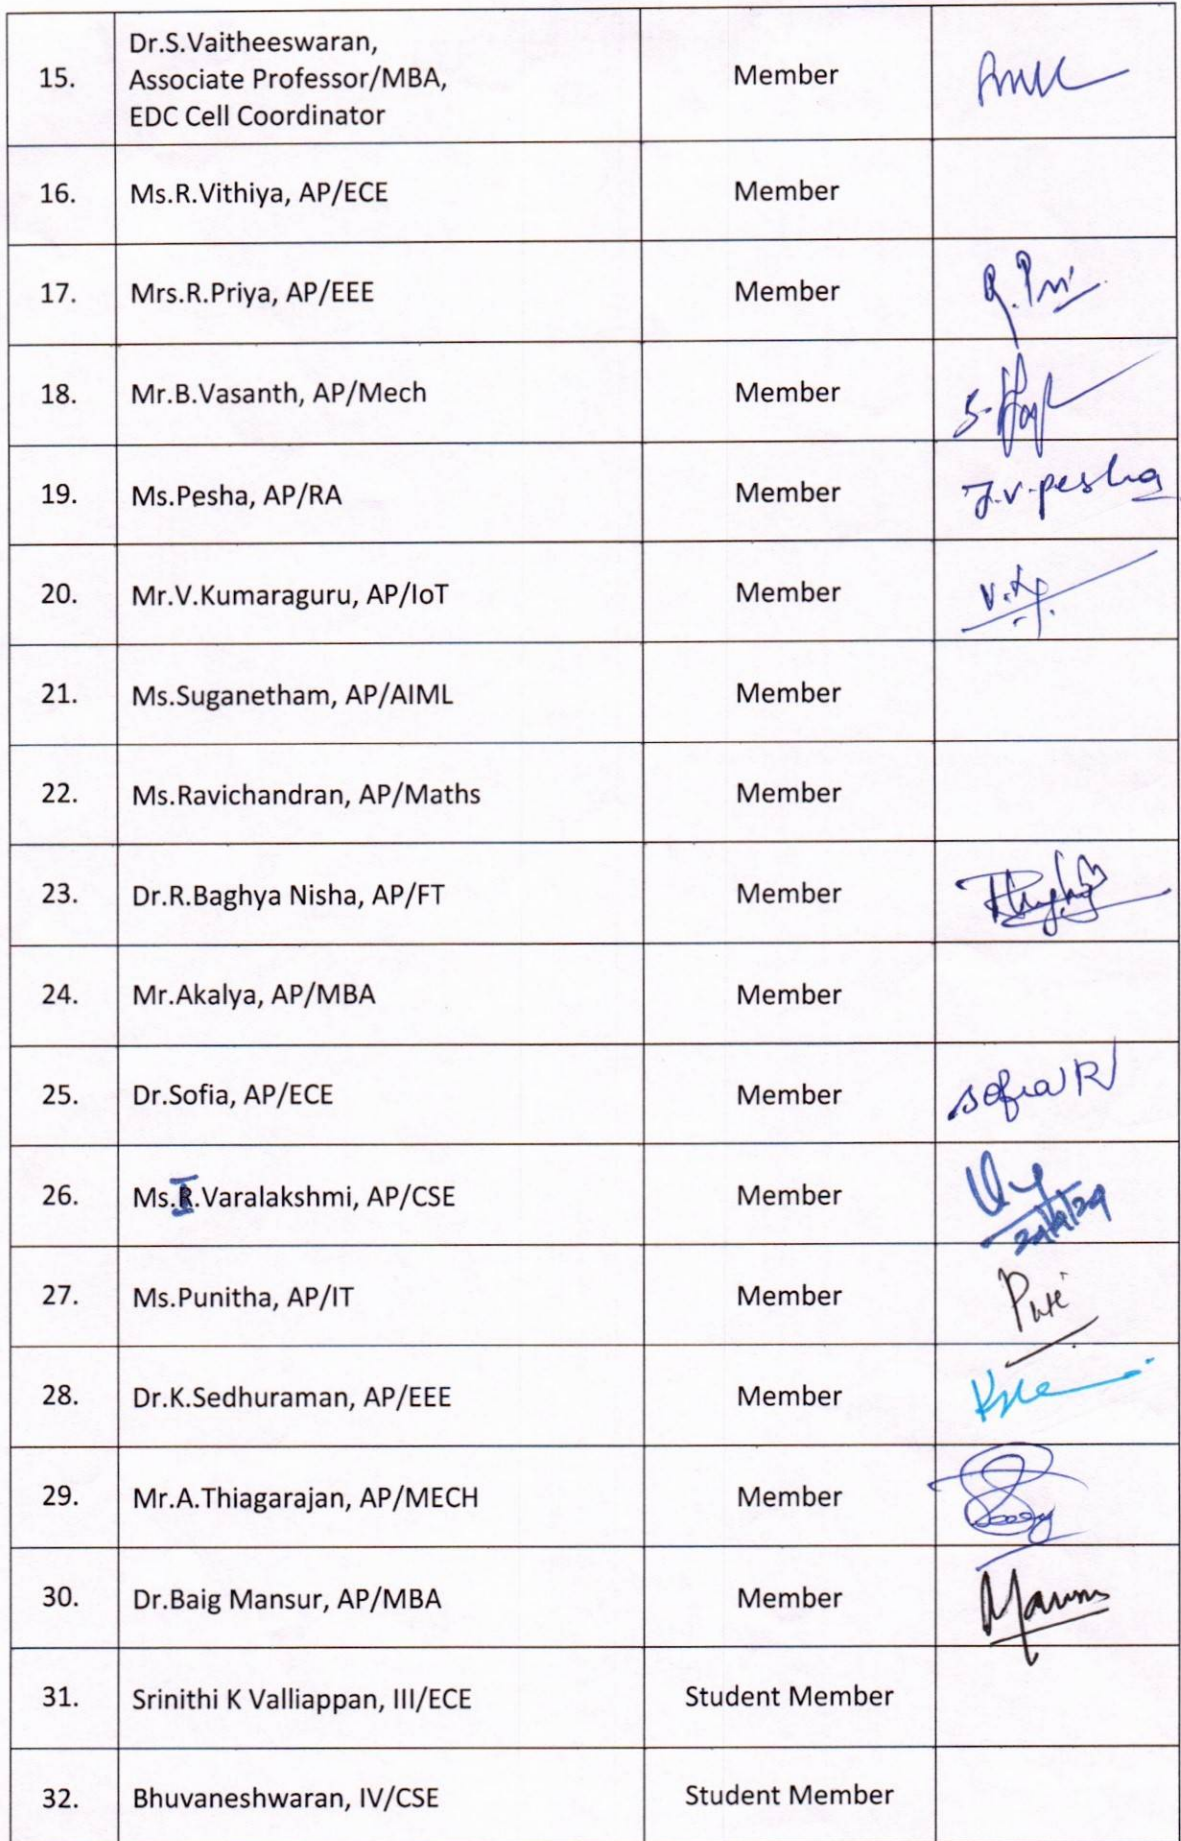 15. Dr.S.Vaitheeswaran,
Associate Professor/MBA,
EDC Cell Coordinator Member
16. Ms.R.Vithiya, AP/ECE Member
17. Mrs.R.Priya, AP/EEE Member
18. Mr.B.Vasanth, AP/Mech Member
19. Ms.Pesha, AP/RA Member J.V.pesha
20. Mr.V.Kumaraguru, AP/IoT Member
21. Ms.Suganetham, AP/AIML Member
22. Ms.Ravichandran, AP/Maths Member
23. Dr.R.Baghya Nisha, AP/FT Member
24. Mr.Akalya, AP/MBA Member
25. Dr.Sofia, AP/ECE Member Sofia R
26. Ms.I.Varalakshmi, AP/CSE Member
27. Ms.Punitha, AP/IT Member
28. Dr.K.Sedhuraman, AP/EEE Member
29. Mr.A.Thiagarajan, AP/MECH Member
30. Dr.Baig Mansur, AP/MBA Member
31. Srinithi K Valliappan, III/ECE Student Member
32. Bhuvaneshwaran, IV/CSE Student Member